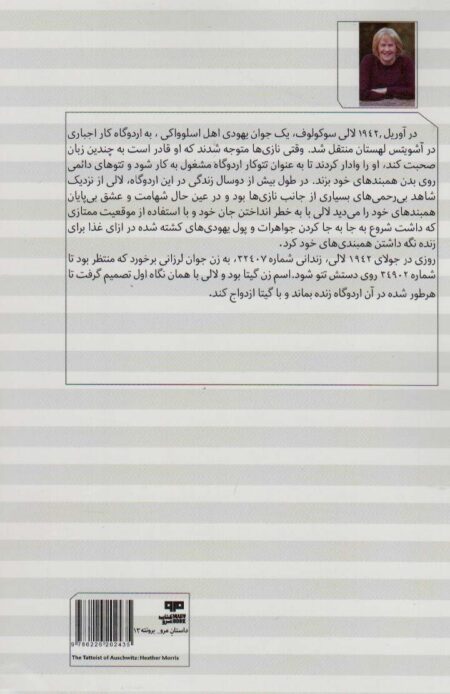 در آوریل ,۱۹۴۲ لالی سوکولوف، یک جوان یهودی اهل اسلوواکی ، به اردوگاه کار اجباری
در آشویتس لهستان منتقل شد. وقتی نازی‌ها متوجه شدند که او قادر است به چندین زبان
صحبت کند، او را وادار کردند تا به عنوان تتوکار اردوگاه مشغول به کار شود و تتوهای دائمی
روی بدن همبندهای خود بزند. در طول بیش از دوسال زندگی در این اردوگاه، لالی از نزدیک
شاهد بی‌رحمی‌های بسیاری از جانب نازی‌ها بود و در عین حال شهامت و عشق بی‌پایان
همبندهای خود را می‌دید لالی با به خطر انداختن جان خود و با استفاده از موقعیت ممتازی
که داشت شروع به جا به جا کردن جواهرات و پول یهودی‌های کشته شده در ازای غذا برای
زنده نگه داشتن همبندی‌های خود کرد.
روزی در جولای ۱۹۴۲ لالی، زندانی شماره ۳۲۴۰۷، به زن جوان لرزانی برخورد که منتظر بود تا
شماره ۳۴۹۰۲ روی دستش تتو شود. اسم زن گیتا بود و لالی با همان نگاه اول تصمیم گرفت تا
هرطور شده در آن اردوگاه زنده بماند و با گیتا ازدواج کند.
داستان مرو_ برونته ۱۲
9 786226 202435
The Tattoist of Auschwitz: Heather Morris